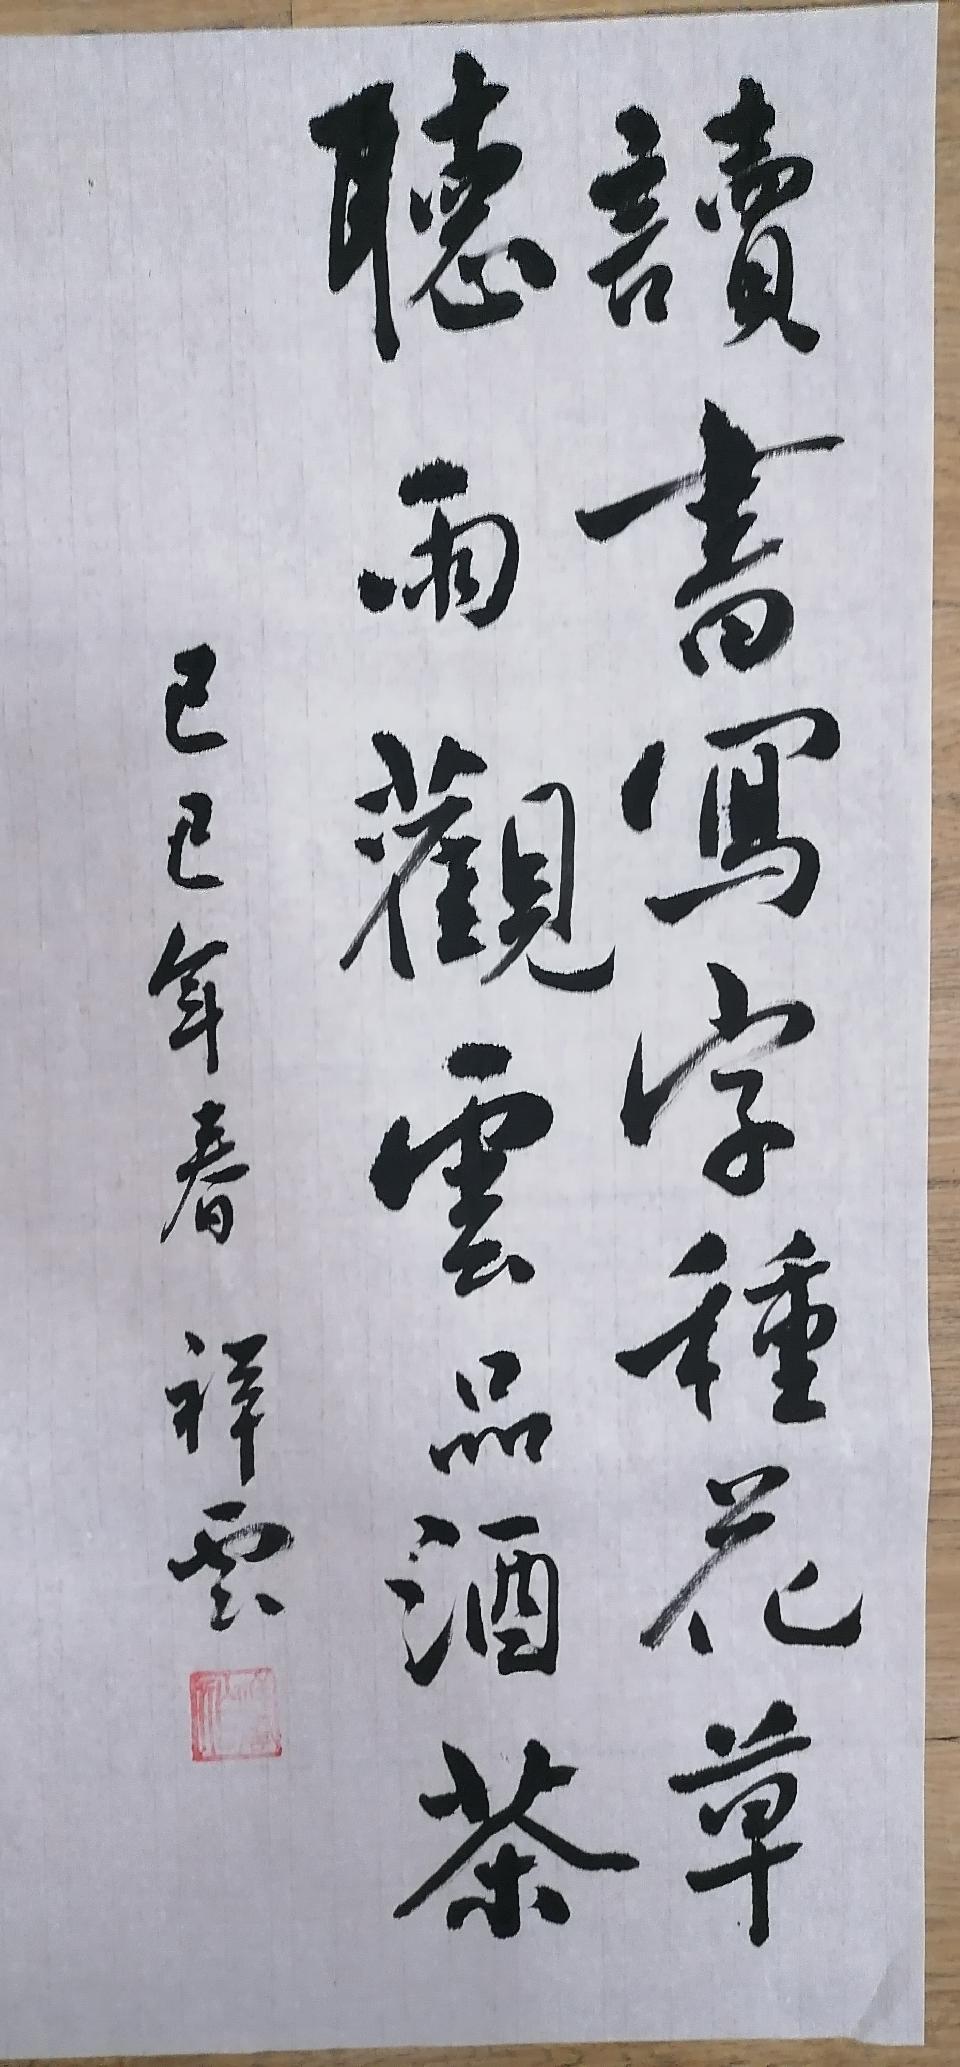 讀書寫字種花草
聽雨觀雲品酒茶
乙巳年春 祥雲